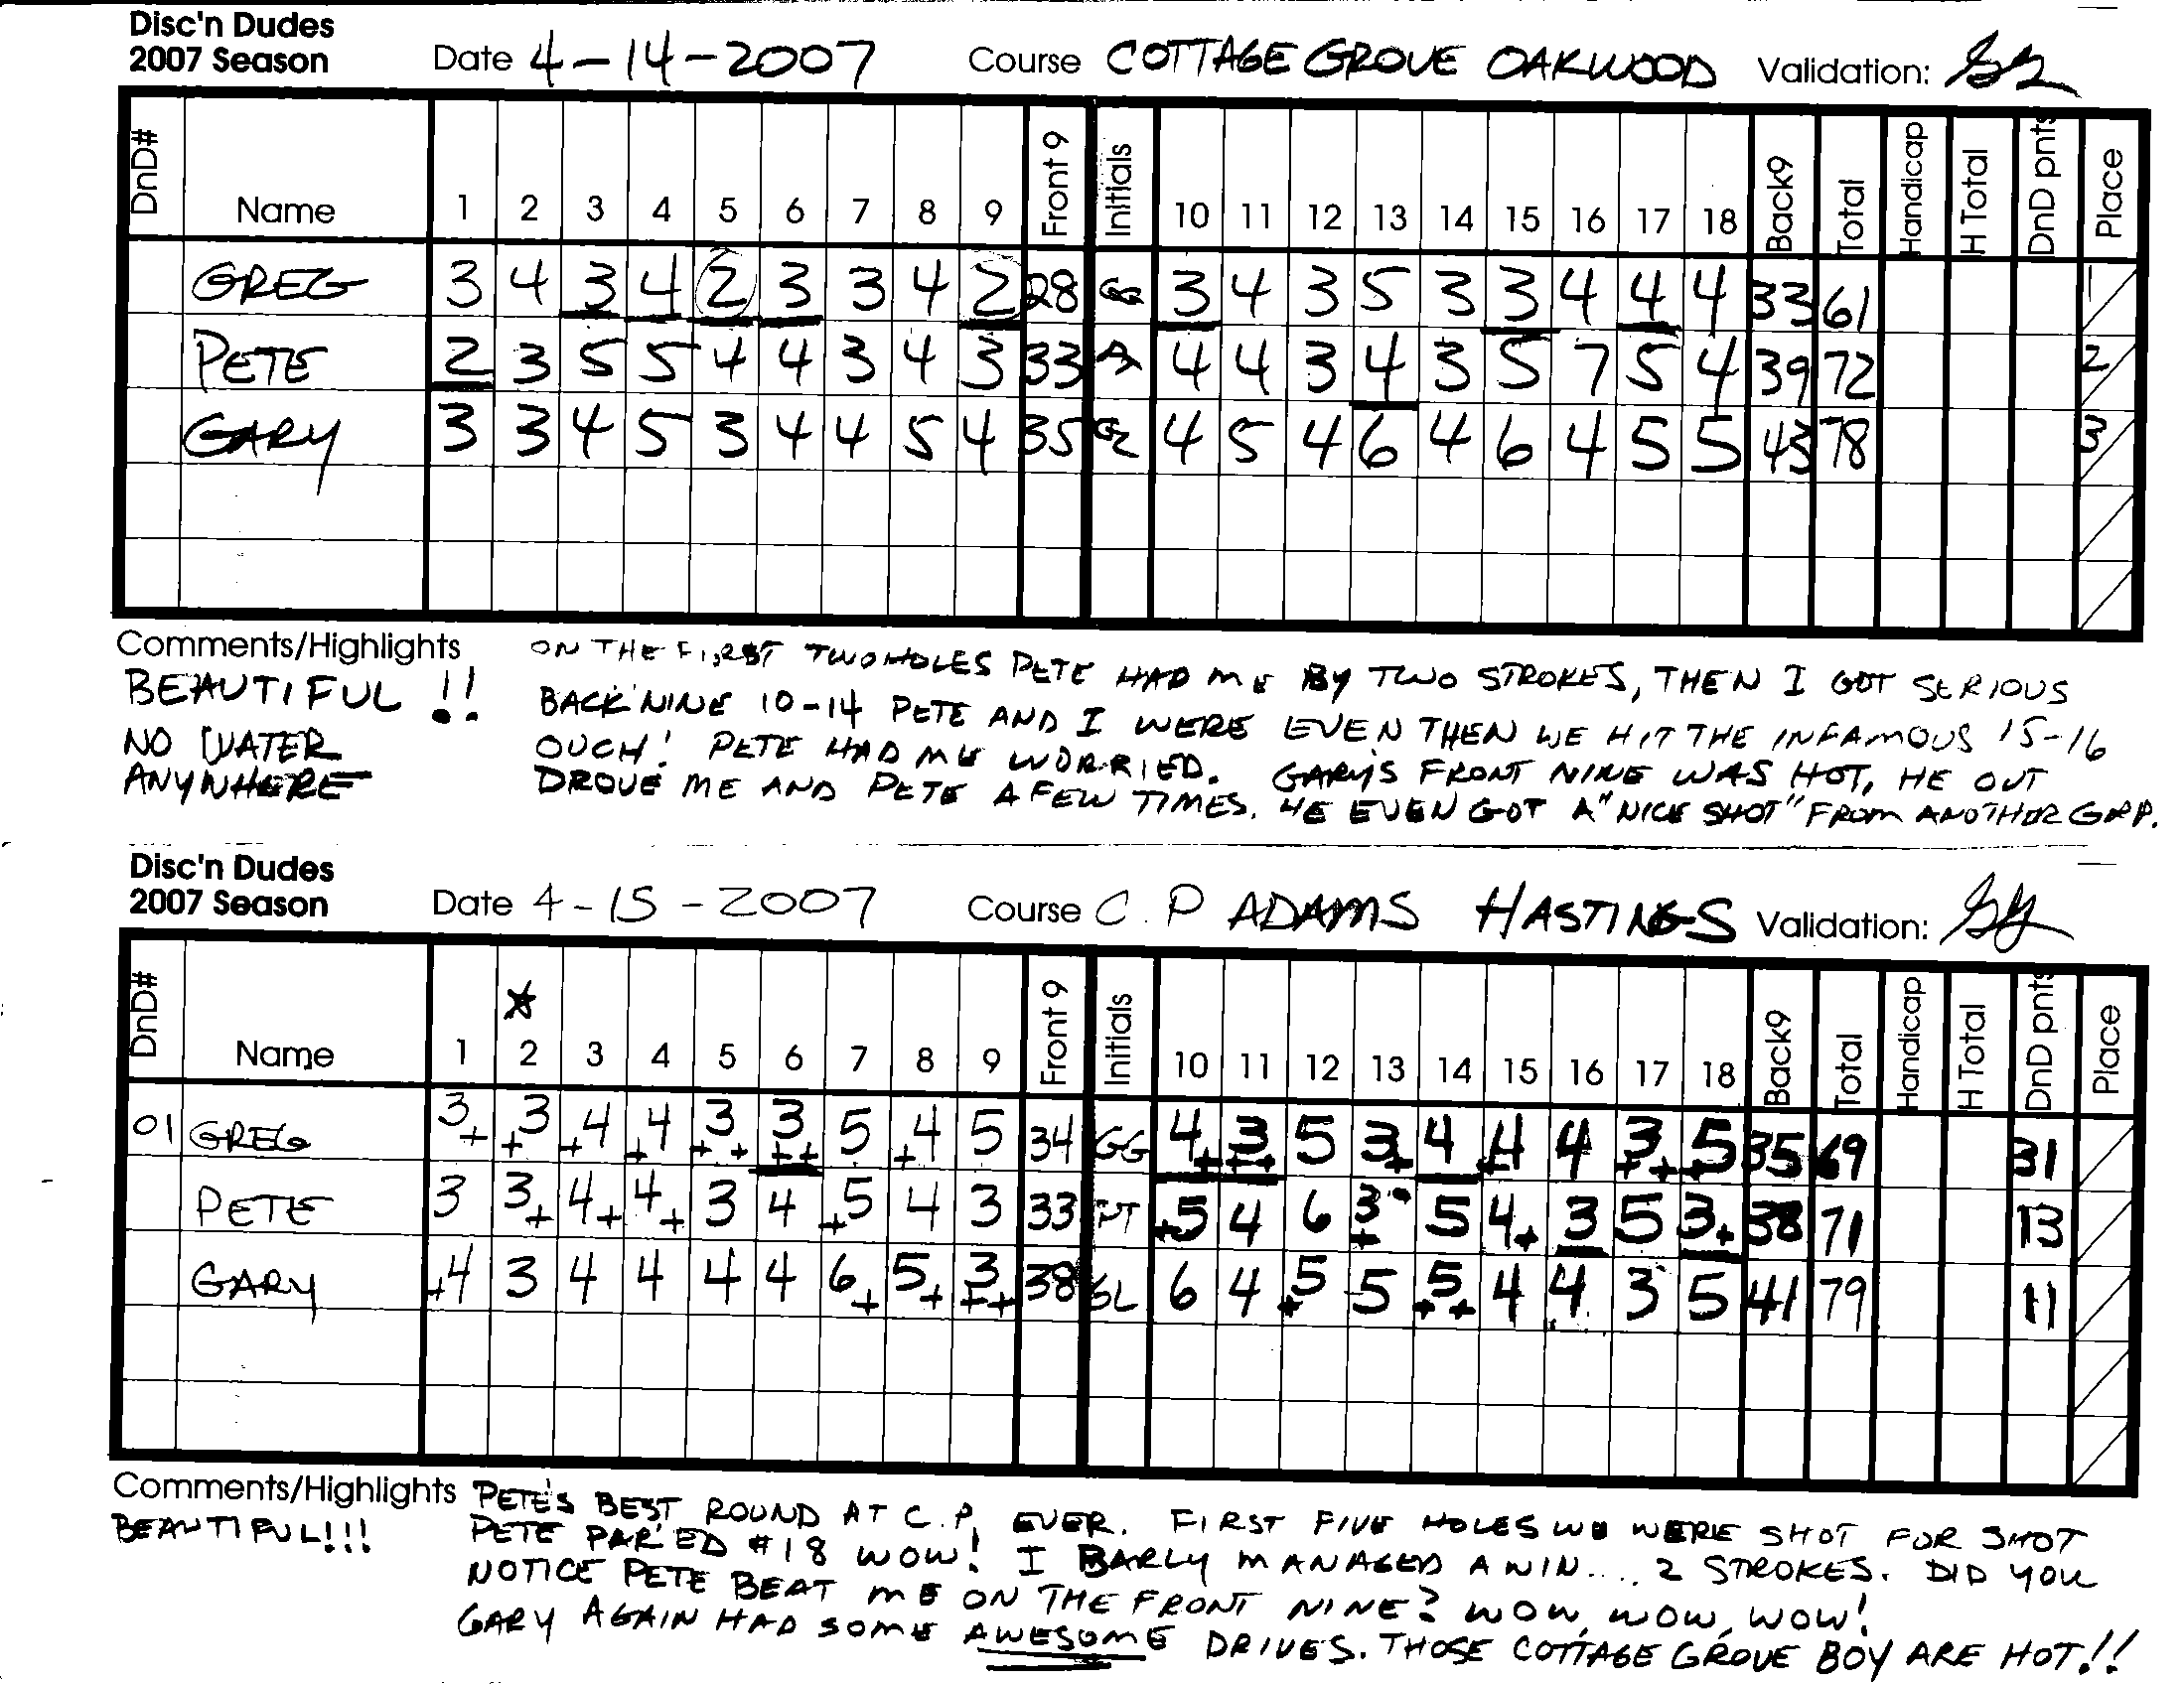 Disc'n Dudes
2007 Season Date 4-14-2007 Course COTTAGE GROVE OAKWOOD Validation:
DnD# Name 1 2 3 4 5 6 7 8 9 Front 9 Initials 10 11 12 13 14 15 16 17 18 Back9 Total Handicap H Total DnD pnts Place
GREG 3 4 3 4 2 3 3 4 2 28 GG 3 4 3 5 3 3 4 4 4 33 61 1
PETE 2 3 5 5 4 4 3 4 3 33 4 4 3 4 3 5 7 5 4 39 72 2
GARY 3 3 4 5 3 4 4 5 4 35 GL 4 5 4 6 4 6 4 5 5 43 78 3
Comments/Highlights
BEAUTIFUL !!
NO WATER
ANYWHERE
ON THE FIRST TWO HOLES PETE HAD ME BY TWO STROKES, THEN I GOT SERIOUS
BACK NINE 10-14 PETE AND I WERE EVEN THEN WE HIT THE INFAMOUS 15-16
OUCH! PETE HAD ME WORRIED. GARY'S FRONT NINE WAS HOT, HE OUT
DROVE ME AND PETE A FEW TIMES. HE EVEN GOT A "NICE SHOT" FROM ANOTHER GRP.
Disc'n Dudes
2007 Season Date 4-15-2007 Course C.P ADAMS HASTINGS Validation:
DnD# Name 1 2 3 4 5 6 7 8 9 Front 9 Initials 10 11 12 13 14 15 16 17 18 Back9 Total Handicap H Total DnD pnts Place
01 GREG 3+ +3 +4 +4 3++ 3++ 5 +4 5 34 GG 4+ 3++ 5 3+ 4 +4 4 3++ +5 35 69 31
PETE 3 3+ 4+ 4+ 3 4 +5 4 3 33 PT +5 4 6 3+ 5 4+ 3 5 3+ 38 71 13
GARY +4 3 4 4 4 4 6+ 5+ 3++ 38 GL 6 4 +5 5 5++ 4 4 3 5 41 79 11
Comments/Highlights
BEAUTIFUL!!!
PETE'S BEST ROUND AT C.P. EVER. FIRST FIVE HOLES WE WERE SHOT FOR SHOT
PETE PAR'ED #18 WOW! I BARLY MANAGED A WIN.... 2 STROKES. DID YOU
NOTICE PETE BEAT ME ON THE FRONT NINE? WOW, WOW, WOW!
GARY AGAIN HAD SOME AWESOME DRIVES. THOSE COTTAGE GROVE BOY ARE HOT!!